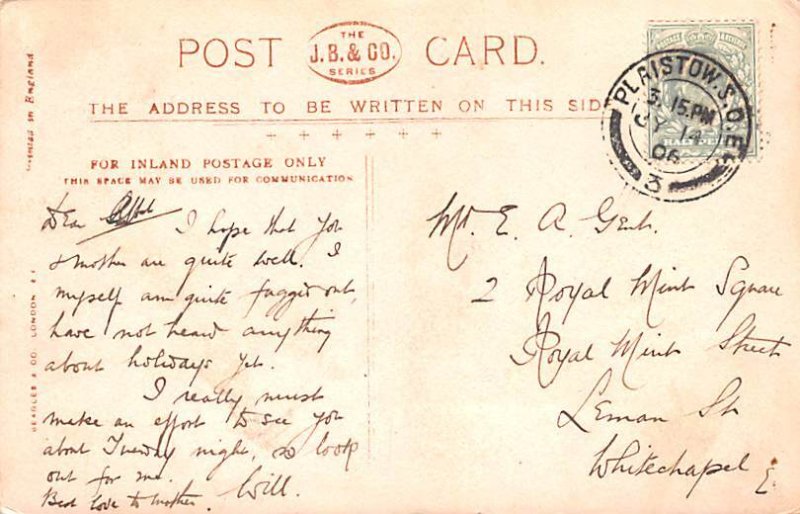 POST CARD.
THE
J.B. & CO.
SERIES
THE ADDRESS TO BE WRITTEN ON THIS SID
FOR INLAND POSTAGE ONLY
THIS SPACE MAY BE USED FOR COMMUNICATION
PLAISTOW. S.O. E
3. 15 PM
14
06
3
HALF PE
in England
BEAGLES & CO. LONDON E.C.
Dear
I hope that you
& mother are quite well. I
myself am quite fagged out,
have not heard anything
about holidays yet.
I really must
make an effort to see you
about Tuesday night, so look
out for me.
Best love to mother. Will.
Mr. E. A. Gent.
2 Royal Mint Square
Royal Mint Street
Leman St
Whitechapel E.